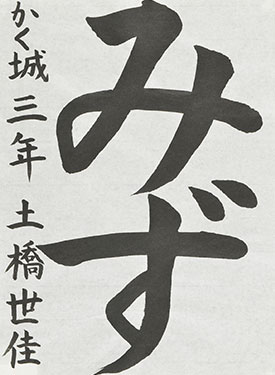 みず
かく城 三年 土橋世佳